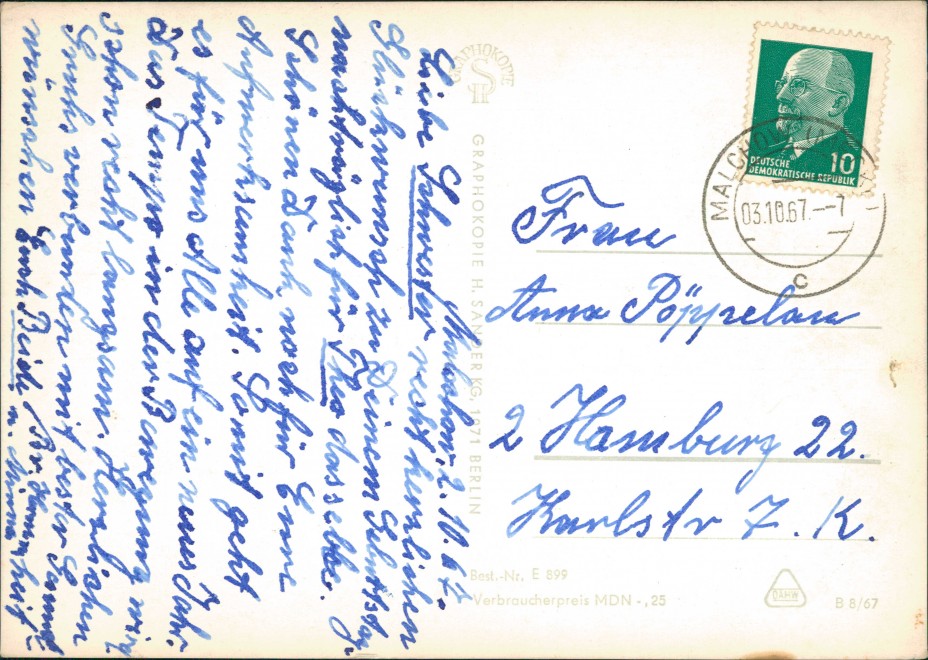 Malchow, 2.10.67.
Liebe Schwester recht herzlichen
Glückwunsch zu Deinem Geburtstag.
nachträglich für Theo dasselbe.
Schönen Dank noch für Eure
Aufmerksamkeit. Somit geht
es für uns Alle auf ein neues Jahr.
Das Tempo in der Bewegung wird
schon recht langsam. Herzlichen
Gruß verbunden mit bester Gesund
wünschen Euch Beide Br. Hermann heit
u. Minna
GRAPHOKOPIE
GRAPHOKOPIE H. SANDER KG, 1071 BERLIN
DEUTSCHE
DEMOKRATISCHE REPUBLIK
10
MALCHOW
03.10.67.--7
c
Frau
Anna Pöppelau
2 Hamburg 22.
Karlstr 7. K.
Best.-Nr. E 899
Verbraucherpreis MDN -,25
DAHW
B 8/67